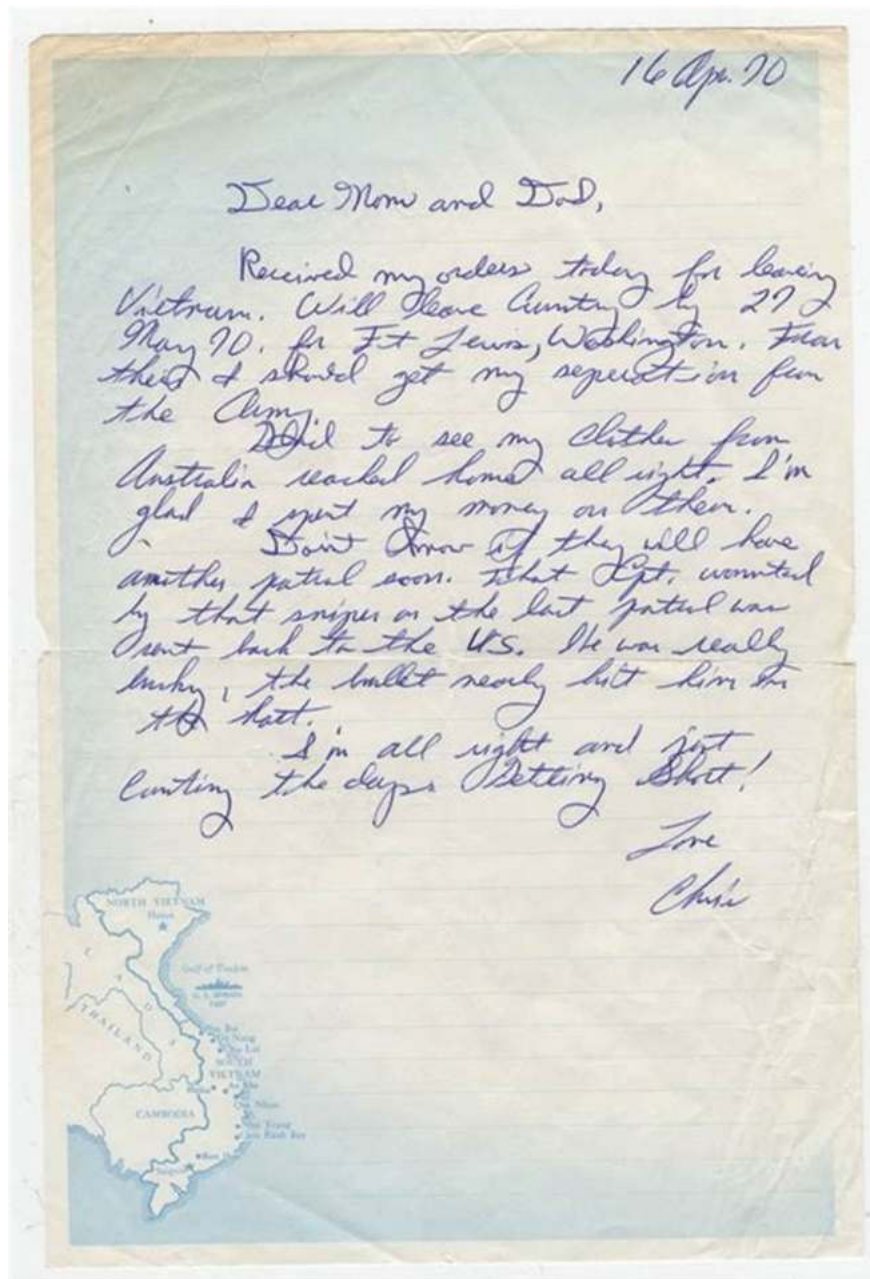 16 Apr. 70
Dear Mom and Dad,
Received my orders today for leaving
Vietnam. Will leave Country by 27
May 70. for Ft Lewis, Washington. From
there I should get my seperation from
the Army.
to see my clothes from
Australia reached home all right. I'm
glad I spent my money on them.
Don't know if they will have
another patrol soon. That Cpt. wounted
by that sniper on the last patrol was
sent back to the US. He was really
lucky, the bullet nearly hit him in
the
I'm all right and just
Counting the days. Getting Short!
Love
Chris
NORTH VIETNAM
Hanoi
Gulf of Tonkin
LAOS
THAILAND
Da Nang
SOUTH
VIETNAM
CAMBODIA
Nha Trang
Cam Ranh Bay
Saigon